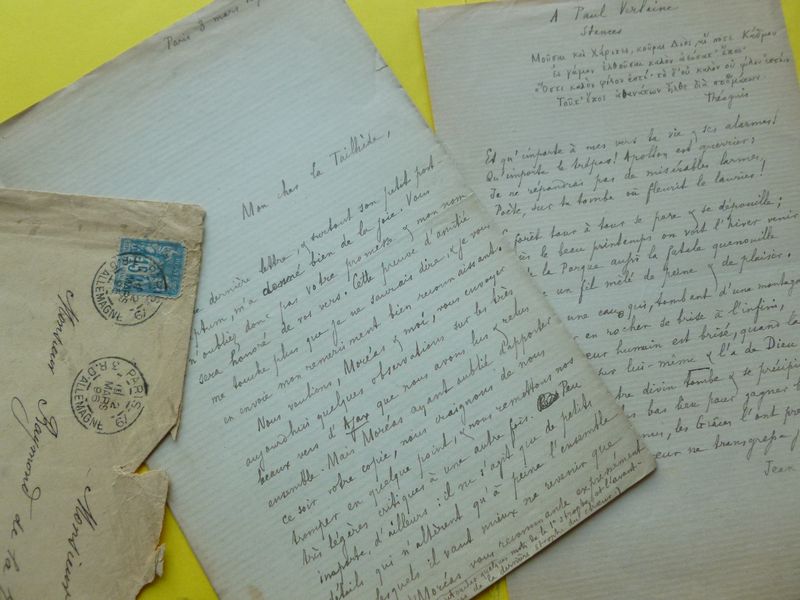 Paris 8 mars
Mon cher La Tailhède,
dernière lettre, & surtout son petit post-
tum, m'a donné bien de la joie. Vous
n'oubliez donc pas votre promesse & mon nom
sera honoré de vos vers. Cette preuve d'amitié
me touche plus que je ne saurais dire & je vous
en envoie mon remerciment bien reconnaissant.
Nous voulions, Moréas & moi, vous envoyer
aujourd'hui quelques observations sur les très
beaux vers d'Ajax que nous avons lus & relus
ensemble. Mais Moréas ayant oublié d'apporter
ce soir votre copie, nous craignons de nous
tromper en quelque point, & nous remettons nos
très légères critiques à une autre fois. Peu
importe, d'ailleurs : il ne s'agit que de petits
détails qui n'altèrent qu'à peine l'ensemble
squels il vaut mieux ne revenir que
Moréas vous recommande expressément
de la dernière strophe du chœur)
A Paul Verlaine
Stances
Μοῦσαι καὶ Χάριτες, κοῦραι Διός, αἵ ποτε Κάδμου
ἐς γάμον ἐλθοῦσαι καλὸν ἀείσατ' ἔπος·
Ὅττι καλὸν φίλον ἐστί· τὸ δ' οὐ καλὸν οὐ φίλον ἐστίν
Τοῦτ' ἔπος ἀθανάτων ἦλθε διὰ στομάτων.
Théognis
Et qu'importe à mes vers ta vie & ses alarmes!
Qu'importe le trépas! Apollon est guerrier:
Je ne répandrai pas de misérables larmes,
Poète, sur ta tombe où fleurit le laurier!
forêt tour à tour se pare & se dépouille;
le beau printemps on voit l'hiver venir
la Parque aussi la fatale quenouille
un fil mêlé de peine & de plaisir.
une eau qui, tombant d'une montagne
en rocher se brise à l'infini,
eur humain est brisé, quand la
sur lui-même & l'a de Dieu
tre divin tombe & se précipi
bas lieu pour gagner l
mes, les Grâces l'ont pr
eur ne transgress
Jean
15
PARIS
3 R. D'ALLEMAGNE
MARS
96
PARIS 19
3 R. D'ALLEMAGNE
MARS
96
Monsieur
Raymond de la
Montauban